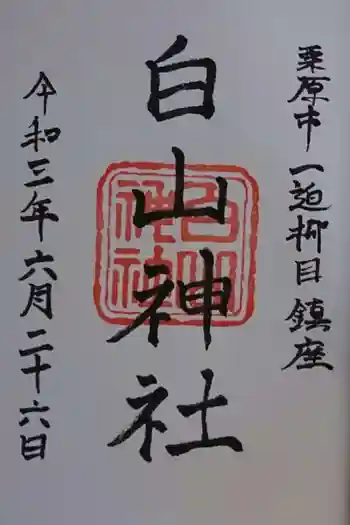 栗原市一迫柳目鎮座
白山神社
白山
神社
令和三年六月二十六日